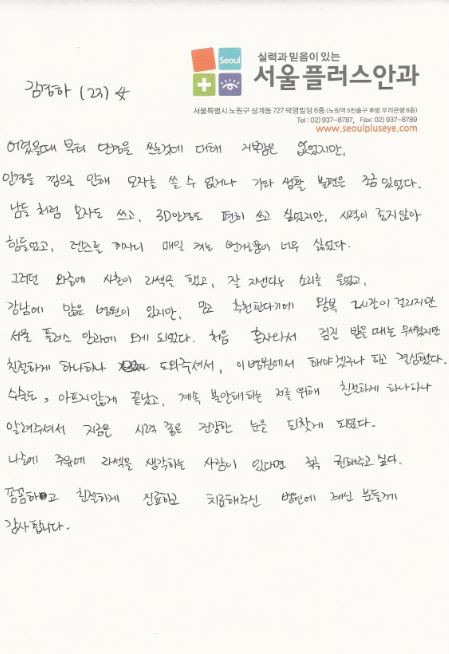 김경하 (23) 女
Seoul
실력과 믿음이 있는
서울플러스안과
서울특별시 노원구 상계동 727 덕영빌딩 6층 (노원역 5번출구 후방 우리은행 8층)
Tel : 02) 937-8787, Fax: 02) 937-8789
www.seoulpluseye.com
어렸을때 부터 안경을 쓰는것에 대해 거부감은 없었지만,
안경을 낌으로 인해 모자를 쓸 수 없거나 기타 생활 불편은 조금 있었다.
남들 처럼 모자도 쓰고, 3D안경도 편히 쓰고 싶었지만, 시력이 좋지않아
힘들었고, 렌즈를 끼자니 매일 끼는 번거움이 너무 싫었다.
그러던 와중에 사촌이 라섹을 했고, 잘 지낸다는 소리를 들었고,
강남에 많은 병원이 있지만, 믿고 추천한다기에 왕복 2시간이 걸리지만
서울 플러스 안과에 오게 되었다. 처음 혼자와서 검진 받을 때는 무서웠지만
친절하게 하나하나 도와주셔서, 이 병원에서 해야겠구나 하고 결심했다.
수술도, 아프지않게 끝났고, 계속 불안해하는 저를 위해 친절하게 하나하나
알려주셔서 지금은 시력 좋고 건강한 눈을 되찾게 되었다.
나중에 주위에 라섹을 생각하는 사람이 있다면 꼭 권해주고 싶다.
꼼꼼하고 친절하게 진료하고 치료해주신 병원에 계신 분들께
감사합니다.